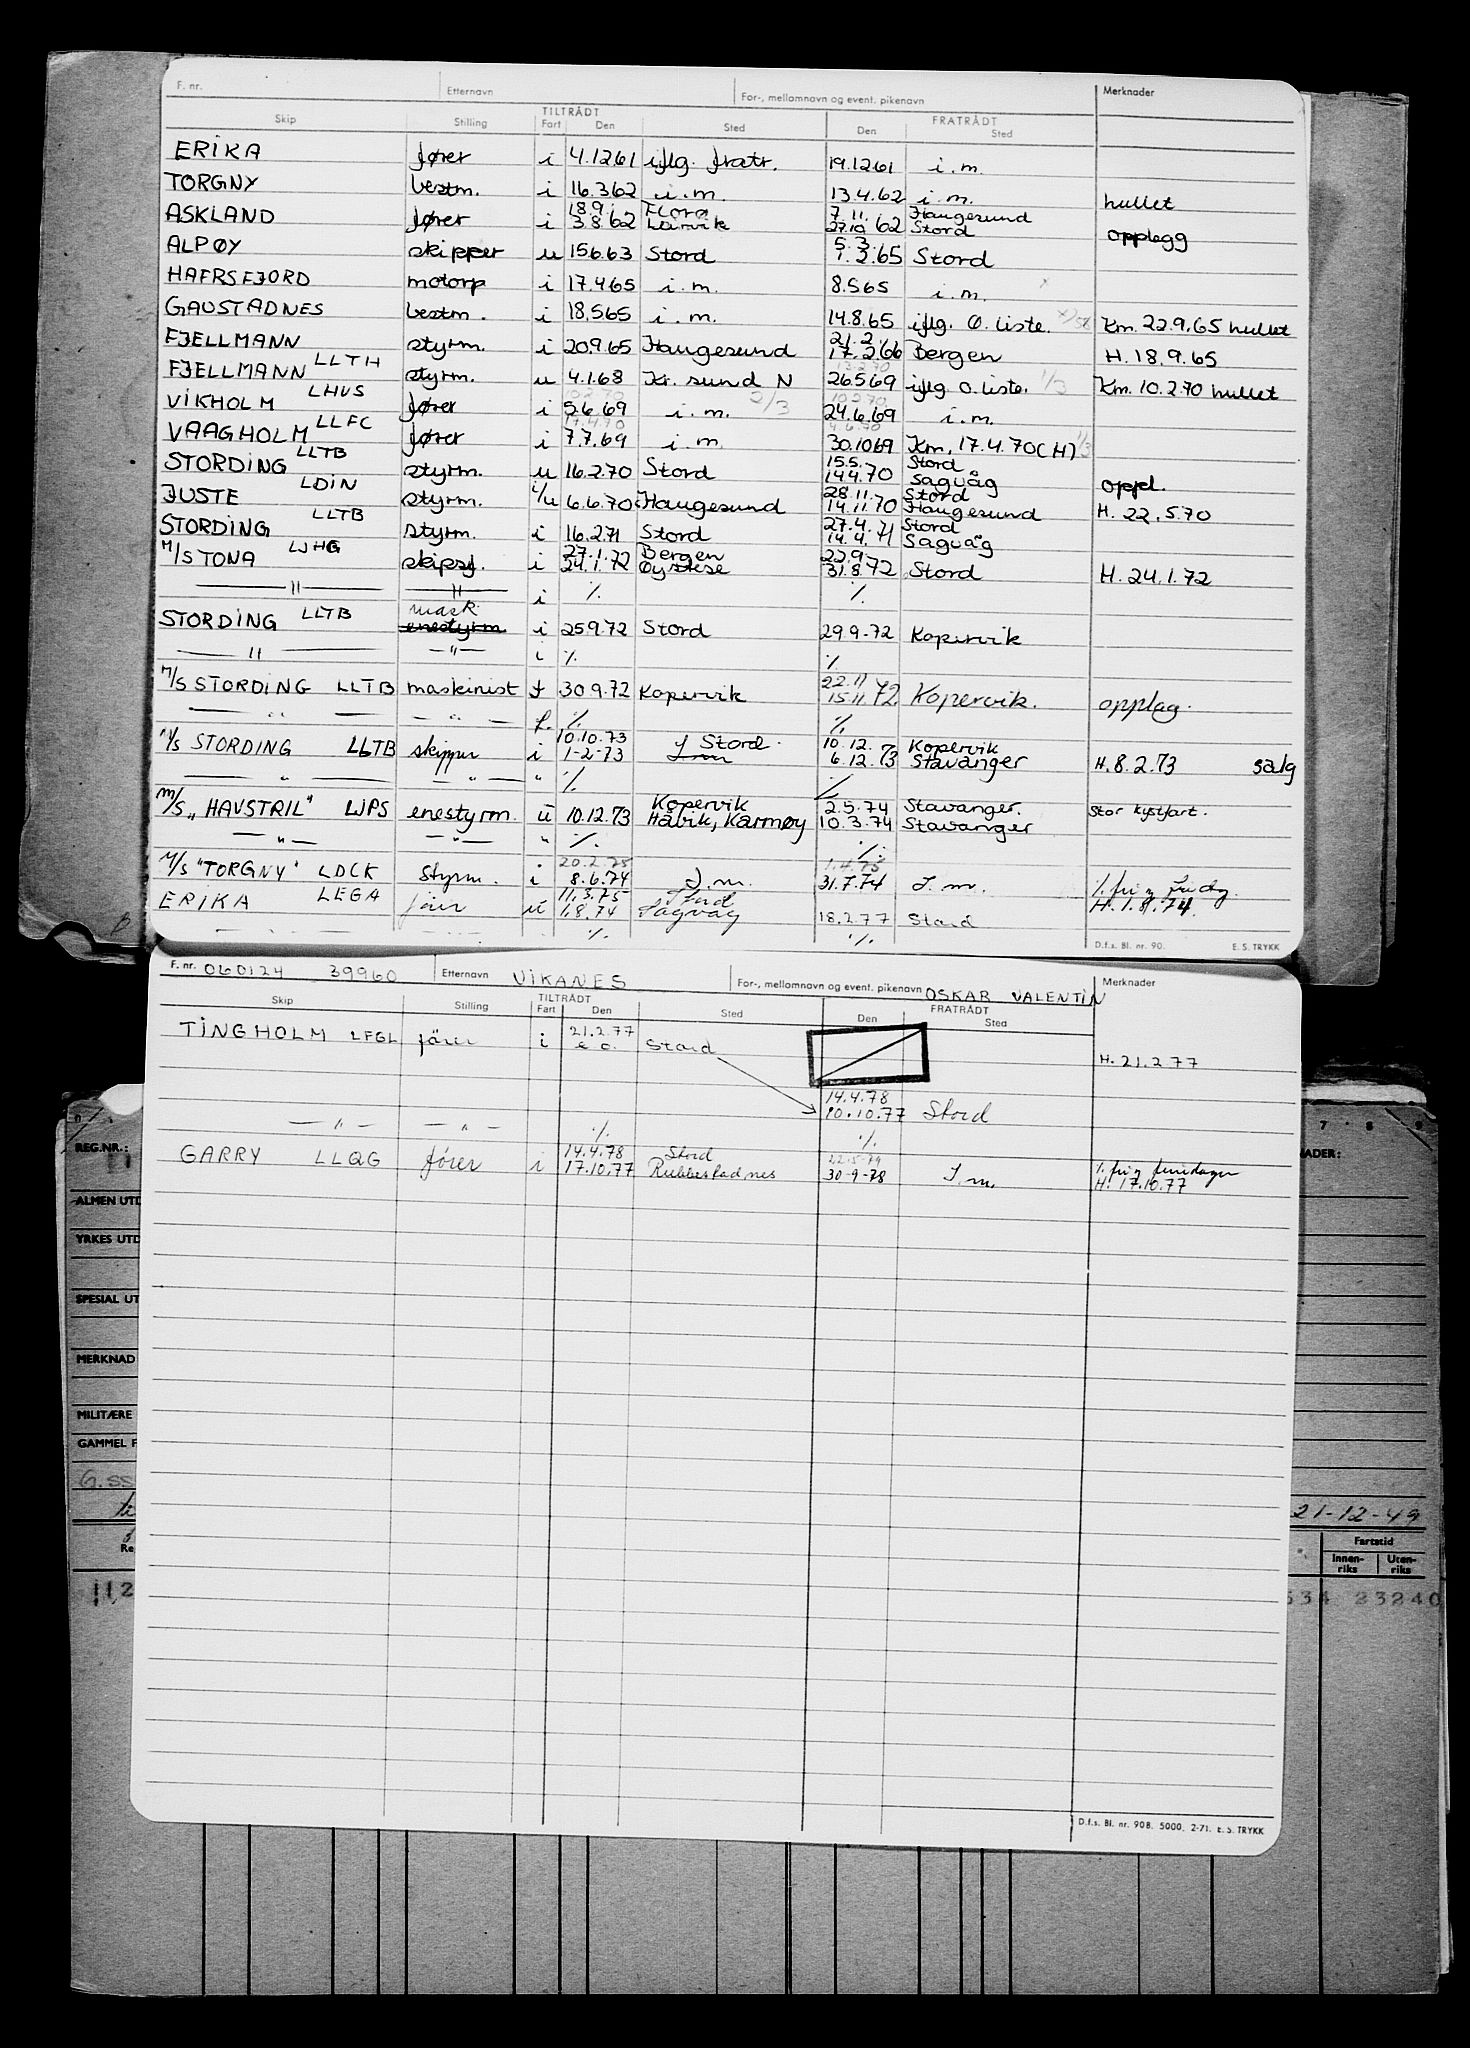 F. nr. Etternavn For-, mellomnavn og event. pikenavn Merknader
TILTRÅDT FRATRÅDT
Skip Stilling Fart Den Sted Den Sted
ERIKA fører i 4.1261 iflg. fratr. 19.1261 i.m.
TORGNY bestm. i 16.362 i.m. 13.4.62 i.m. hullet
18.9. Florø 7.11. Haugesund
ASKLAND fører i 3.8.62 Larvik 27.10 62 Stord opplegg
5.3.
ALPØY skipper u 15.6.63 Stord 1.2.65 Stord
HAFRSFJORD motorp i 17.4.65 i.m. 8.5.65 i.m.
GAUSTADNES bestm. i 18.5.65 i.m. 14.8.65 iflg. O. liste. Km. 22.9.65 hullet
21.2.
FJELLMANN styrm. i 20.9.65 Haugesund 17.2.66 Bergen H. 18.9.65
FJELLMANN LLTH styrm. u 4.1.68 Kr. sund N 26.5.69 iflg. o. liste. 1/3 Km. 10.2.70 hullet
VIKHOLM LHUS fører i 5.6.69 i.m. 2/3 24.6.69 i.m.
VAAGHOLM LLFC fører i 7.7.69 i.m. 30.10.69 Km. 17.4.70 (H) 1/3
15.5. Stord
STORDING LLTB styrm. u 16.2.70 Stord 14.4.70 Sagvåg oppl.
28.11. Stord
JUSTE LDIN styrm. i/u 6.6.70 Haugesund 14.11.70 Haugesund H. 22.5.70
27.4. Stord
STORDING LLTB styrm. i 16.2.71 Stord 14.4. 71 Sagvåg
27.1.72 Bergen 22.9.
M/S TONA LJHG skipsf. i 24.1.72 Øystese 31.8.72 Stord H. 24.1.72
— " — — " — i % %
mask.
STORDING LLTB enestyrm i 25.9.72 Stord 29.9.72 Kopervik
— " — — " — i % %
22.11
M/S STORDING LLTB maskinist f 30.9.72 Kopervik 15.11.72 Kopervik. opplag.
— " — — " — f. % %
10.10.73 10.12. Kopervik
M/S STORDING LLTB skipper i 1-2-73 Stord 6.12.73 Stavanger H. 8.2.73 salg
— " — — " — " % %
Kopervik 2.5.74 Stavanger.
M/S „HAVSTRIL" LJPS enestyrm. ū 10.12.73 Håvik, Karmøy 10.3.74 Stavanger Stor kystfart.
— " — — " — " % %
20.2.75 1.4.75
M/S "TORGNY" LDCK styrm. i 8.6.74 I.m. 31.7.74 I.m.
11.3.75 Stord
ERIKA LEGA fører ū 1.8.74 Sagvåg 18.2.77 Stord H. 1.8.74.
% %
D.f.s. Bl. nr. 90. E. S. TRYKK
F. nr. 060124 39960 Etternavn VIKANES For-, mellomnavn og event. pikenavn OSKAR VALENTIN Merknader
TILTRÅDT FRATRÅDT
Skip Stilling Fart Den Sted Den Sted
21.2.77
TINGHOLM LFGL fører i e.o. Stord H. 21.2.77
14.4.78
10.10.77 Stord
— " — — " — % %
14.4.78 Stord 22.5.79
GARRY LLQG fører i 17.10.77 Rubbestadnes 30-9-78 I.m. H. 17.10.77
D.f.s. Bl. nr. 908. 5000. 2-71. E. S. TRYKK
REG.NR.:
ALMEN UTD
YRKES UTD
SPESIAL UT
MERKNAD
MILITÆRE
GAMMEL F
7 8 9
21-12-49
Fartstid
Innenriks Utenriks
112 534 23240